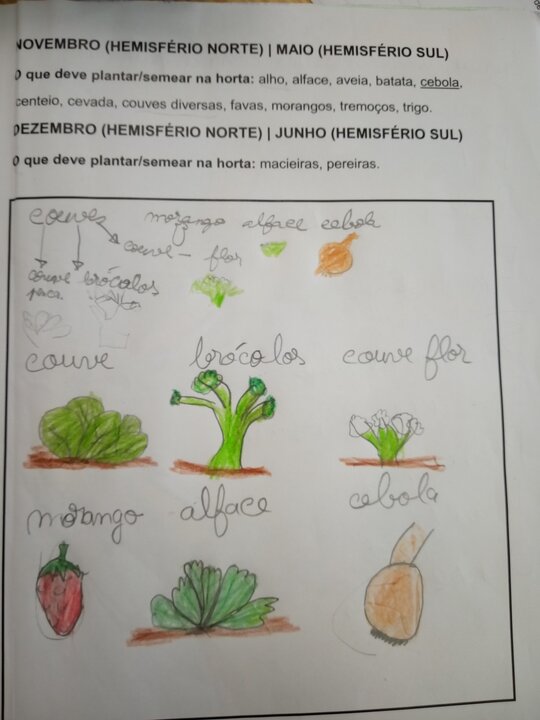 NOVEMBRO (HEMISFÉRIO NORTE) | MAIO (HEMISFÉRIO SUL)
O que deve plantar/semear na horta: alho, alface, aveia, batata, cebola,
centeio, cevada, couves diversas, favas, morangos, tremoços, trigo.
DEZEMBRO (HEMISFÉRIO NORTE) | JUNHO (HEMISFÉRIO SUL)
O que deve plantar/semear na horta: macieiras, pereiras.
couves morango alface cebola
couve - flor
couve brócolos
couve brócolos couve flor
morango alface cebola